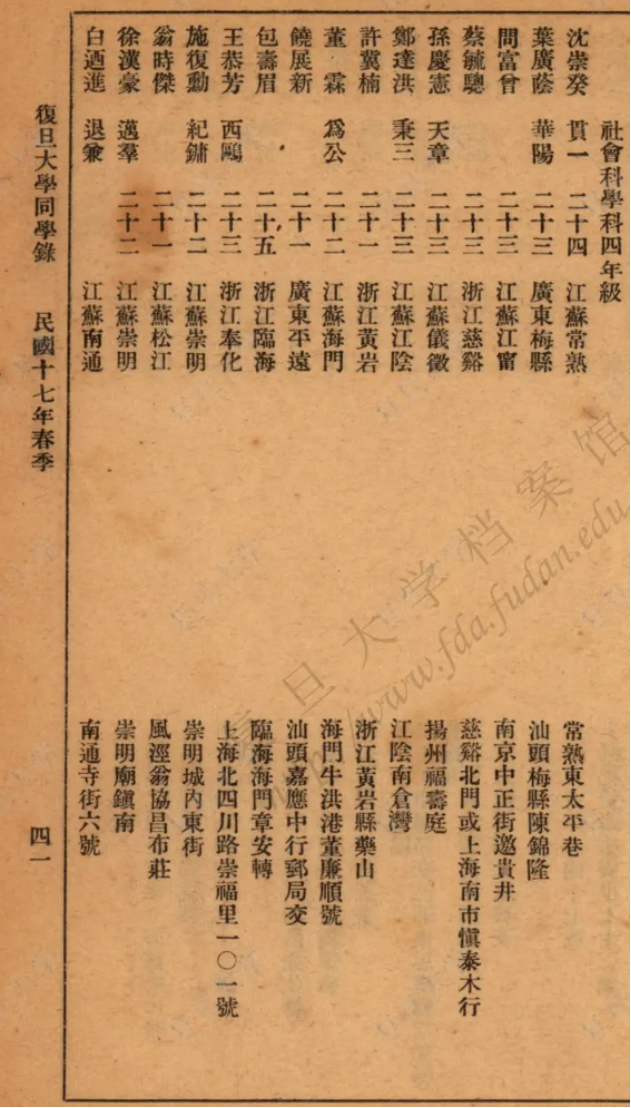 社會科學科四年級
沈崇癸 貫一 二十四 江蘇常熟 常熟東太平巷
葉廣蔭 華陽 二十三 廣東梅縣 汕頭梅縣陳錦隆
問富曾 二十三 江蘇江甯 南京中正街邀貴井
蔡毓驄 二十三 浙江慈谿 慈谿北門或上海南市愼泰木行
孫慶憲 天章 二十三 江蘇儀徵 揚州福壽庭
鄭達洪 秉三 二十三 江蘇江陰 江陰南倉灣
許冀楠 二十一 浙江黃岩 浙江黃岩縣藥山
董霖 爲公 二十二 江蘇海門 海門牛洪港董廉順號
饒展新 二十一 廣東平遠 汕頭嘉應中行郵局交
包壽眉 二十五 浙江臨海 臨海海門章安轉
王恭芳 西鷗 二十三 浙江奉化 上海北四川路崇福里一〇一號
施復勳 紀鏞 二十二 江蘇崇明 崇明城內東街
翁時傑 二十一 江蘇松江 風涇翁協昌布莊
徐漢豪 邁羣 二十二 江蘇崇明 崇明廟鎭南
白迺進 退兼 江蘇南通 南通寺街六號
復旦大學同學錄 民國十七年春季 四一
复旦大学档案馆
http://www.fda.fudan.edu